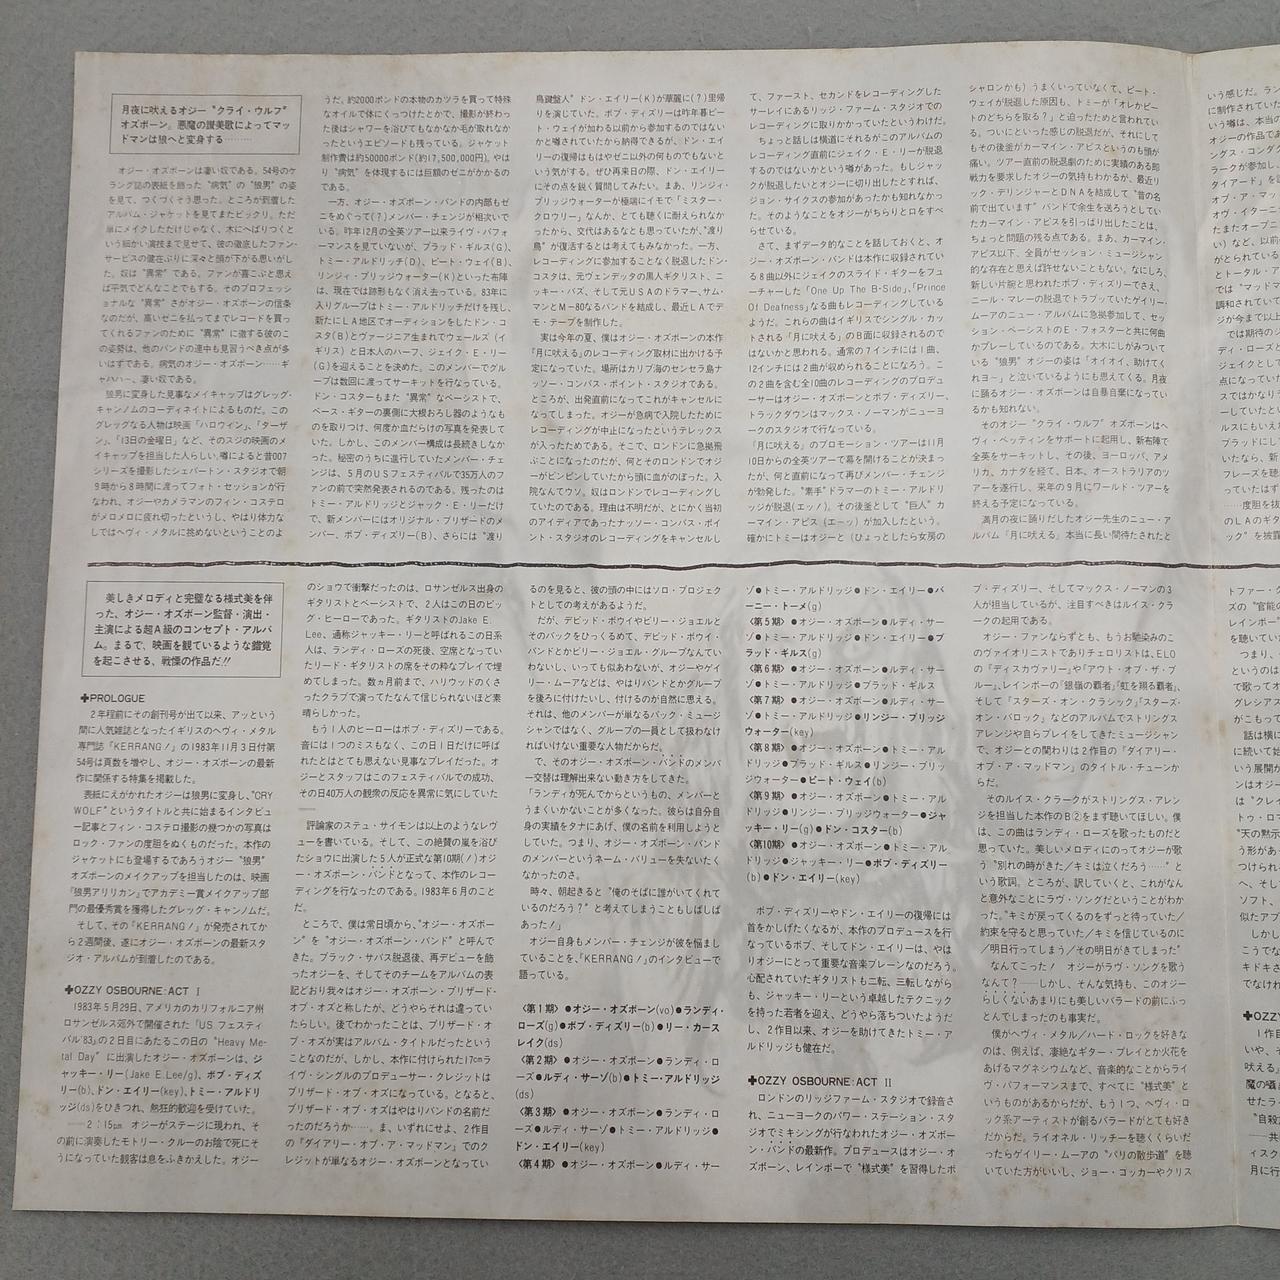 月夜に吠えるオジー〝クライ・ウルフ〟
オズボーン。悪魔の讃美歌によってマッ
ドマンは狼へと変身する………
オジー・オズボーンは凄い奴である。54号のケ
ラング誌の表紙を飾った〝病気〟の〝狼男〟の姿
を見て、つくづくそう思った。ところが到着した
アルバム・ジャケットを見てまたビックリ。ただ
単にメイクしただけじゃなく、木にへばりつくと
いう細かい演技まで見せて、彼の徹底したファン・
サービスの健在ぶりに深々と頭が下がる思いがし
た。奴は〝異常〟である。ファンが喜こぶと思え
ば平気でどんなことでもする。そのプロフェッシ
ョナルな〝異常〟さがオジー・オズボーンの信条
なのだが、高いゼニを払ってまでレコードを買っ
てくれるファンのために〝異常〟に徹する彼のこ
の姿勢は、他のバンドの連中も見習うべき点が多
いはずである。病気のオジー・オズボーン……ギ
ャハハー、凄い奴である。
狼男に変身した見事なメイキャップはグレッグ・
キャンノムのコーディネイトによるものだ。この
グレッグなる人物は映画「ハロウィン」、「ターザ
ン」、「13日の金曜日」など、そのスジの映画のメ
イキャップを担当した人らしい。噂によると昔007
シリーズを撮影したシェパートン・スタジオで朝
9時から8時間に渡ってフォト・セッションが行
なわれ、オジーやカメラマンのフィン・コステロ
がメロメロに疲れ切ったというし、やはり体力な
しではヘヴィ・メタルに挑めないということのよ
うだ。約2000ポンドの本物のカツラを買って特殊
なオイルで体にくっつけたとかで、撮影が終わっ
た後はシャワーを浴びてもなかなか毛が取れなか
ったというエピソードも残っている。ジャケット
制作費は約50000ポンド(約17,500,000円)。やは
り〝病気〟を体現するには巨額のゼニがかかるの
である。
一方、オジー・オズボーン・バンドの内部もゼ
ニをめぐって(?)メンバー・チェンジが相次いで
いる。昨年12月の全英ツアー以来ライヴ・パフォ
ーマンスを見ていないが、ブラッド・ギルス(G)、
トミー・アルドリッチ(D)、ピート・ウェイ(B)、
リンジィ・ブリッジウォーター(K)といった布陣
は、現在では跡形もなく消え去っている。83年に
入りグループはトミー・アルドリッチだけを残し、
新たにLA地区でオーディションをしたドン・コ
スタ(B)とヴァージニア生まれでウェールズ(イ
ギリス)と日本人のハーフ、ジェイク・E・リー
(G)を迎えることを決めた。このメンバーでグル
ープは数回に渡ってサーキットを行なっている。
ドン・コスターもまた〝異常〟なベーシストで、
ベース・ギターの裏側に大根おろし器のようなも
のを取りつけ、何度か血だらけの写真を発表して
いた。しかし、このメンバー構成は長続きしなか
った。秘密のうちに進行していたメンバー・チェ
ンジは、5月のUSフェスティバルで35万人のフ
ァンの前で突然発表されるのである。残ったのは
トミー・アルドリッチとジャック・E・リーだけ
で、新メンバーにはオリジナル・ブリザードのメ
ンバー、ボブ・ディズリー(B)、さらには〝渡り
鳥鍵盤人〟ドン・エイリー(K)が華麗に(?)里帰
りを演じていた。ボブ・ディズリーは昨年暮ピー
ト・ウェイが加わる以前から参加するのではない
かと噂されていたから納得できるが、ドン・エイ
リーの復帰はもはやゼニ以外の何ものでもないと
いう気がする。ぜひ再来日の際、ドン・エイリー
にその点を鋭く質問してみたい。まあ、リンジィ・
ブリッジウォーターが極端にイモで「ミスター・
クロウリー」なんか、とても聴くに耐えられなか
ったから、交代はあるなとも思っていたが、〝渡り
鳥〟が復活するとは考えてもみなかった。一方、
レコーディングに参加することなく脱退したドン・
コスタは、元ヴェンデッタの黒人ギタリスト、ニ
ッキー・バズ、そして元USAのドラマー、サム・
マンとM−80なるバンドを結成し、最近LAでデ
モ・テープを制作した。
実は今年の夏、僕はオジー・オズボーンの本作
「月に吠える」のレコーディング取材に出かける予
定になっていた。場所はカリブ海のセンセラ島ナ
ッソー・コンパス・ポイント・スタジオである。
ところが、出発直前になってこれがキャンセルに
なってしまった。オジーが急病で入院したために
レコーディングが中止になったというテレックス
が入ったためである。そこで、ロンドンに急拠飛
ぶことになったのだが、何とそのロンドンでオジ
ーがピンピンしていたから頭に血がのぼった。入
院なんてウソ。奴はロンドンでレコーディングし
ていたのである。理由は不明だが、とにかく当初
のアイディアであったナッソー・コンパス・ポイ
ント・スタジオのレコーディングをキャンセルし
て、ファースト、セカンドをレコーディングした
サーレイにあるリッジ・ファーム・スタジオでの
レコーディングに取りかかっていたというわけだ。
ちょっと話しは横道にそれるがこのアルバムの
レコーディング直前にジェイク・E・リーが脱退
するのではないかという噂があった。もしジャッ
クが脱退したいとオジーに切り出したとすれば、
ジョン・サイクスの参加があったかも知れなかっ
た。そのようなことをオジーがちらりと口をすべ
らせている。
さて、まずデータ的なことを話しておくと、オ
ジー・オズボーン・バンドは本作に収録されてい
る8曲以外にジェイクのスライド・ギターをフュ
ーチャーした「One Up The B-Side」、「Prince
Of Deafness」なる曲もレコーディングしている
ようだ。これらの曲はイギリスでシングル・カッ
トされる「月に吠える」のB面に収録されるので
はないかと思われる。通常の7インチには1曲、
12インチには2曲が収められることになろう。こ
の2曲を含む全10曲のレコーディングのプロデュ
ーサーはオジー・オズボーンとボブ・ディズリー、
トラックダウンはマックス・ノーマンがニューヨ
ークのスタジオで行なっている。
「月に吠える」のプロモーション・ツアーは11月
10日からの全英ツアーで幕を開けることが決まっ
たが、何と直前になって再びメンバー・チェンジ
が勃発した。〝素手〟ドラマーのトミー・アルドリ
ッジが脱退(エッ!)。その後釜として〝巨人〟カ
ーマイン・アピス(エーッ)が加入したという。
確かにトミーはオジーと(ひょっとしたら女房の
シャロンかも)うまくいっていなくて、ピート・
ウェイが脱退した原因も、トミーが「オレかピー
トのどちらを取る?」と迫ったためと言われてい
る。ついにといった感じの脱退だが、それにして
もその後釜がカーマイン・アピスというのも頭が
痛い。ツアー直前の脱退劇のために実績のある即
戦力を要求したオジーの気持もわかるが、最近リ
ック・デリンジャーとDNAを結成して〝昔の名
前で出ています〟バンドで余生を送ろうとしてい
たカーマイン・アピスを引っぱり出したことは、
ちょっと問題の残る点である。まあ、カーマイン・
アピス以下、全員がセッション・ミュージシャン
的な存在と思えば許せないこともない。なにしろ、
新しい片腕と思われたボブ・ディズリーでさえ、
ニール・マレーの脱退でトラブっていたゲイリー・
ムーアのニュー・アルバムに急拠参加して、セッ
ション・ベーシストのE・フォスターと共に何曲
かプレーしているのである。大木にしがみついて
いる〝狼男〟オジーの姿は「オイオイ、助けてく
れヨー」と泣いているようにも思えてくる。月夜
に踊るオジー・オズボーンは自暴自棄になってい
るかも知れない。
そのオジー〝クライ・ウルフ〟オズボーンはヘ
ヴィ・ペッティンをサポートに起用し、新布陣で
全英をサーキットし、その後、ヨーロッパ、アメ
リカ、カナダを経て、日本、オーストラリアのツ
アーを遂行し、来年の9月にワールド・ツアーを
終える予定になっている。
満月の夜に踊りだしたオジー先生のニュー・ア
ルバム「月に吠える」本当に長い間待たされたと
美しきメロディと完璧なる様式美を伴
った、オジー・オズボーン監督・演出・
主演による超A級のコンセプト・アルバ
ム。まるで、映画を観ているような錯覚
を起こさせる、戦慄の作品だ!!
✚PROLOGUE
2年程前にその創刊号が出て以来、アッという
間に人気雑誌となったイギリスのヘヴィ・メタル
専門誌『KERRANG!』の1983年11月3日付第
54号は頁数を増やし、オジー・オズボーンの最新
作に関係する特集を掲載した。
表紙にえがかれたオジーは狼男に変身し、“CRY
WOLF”というタイトルと共に始まるインタビュ
ー記事とフィン・コステロ撮影の幾つかの写真は
ロック・ファンの度胆をぬくものだった。本作の
ジャケットにも登場するであろうオジー〝狼男〟
オズボーンのメイクアップを担当したのは、映画
『狼男アリリカン』でアカデミー賞メイクアップ部
門の最優秀賞を獲得したグレッグ・キャンノムだ。
そして、その『KERRANG!』が発売されてか
ら2週間後、遂にオジー・オズボーンの最新スタ
ジオ・アルバムが到着したのである。
✚OZZY OSBOURNE:ACT Ⅰ
1983年5月29日、アメリカのカリフォルニア州
ロサンゼルス郊外で開催された『US フェスティ
バル'83』の2日目にあたるこの日の“Heavy Me-
tal Day”に出演したオジー・オズボーンは、ジ
ャッキー・リー(Jake E.Lee/g)、ボブ・ディズ
リー(b)、ドン・エイリー(key)、トミー・アルドリ
ッジ(ds)をひきつれ、熱狂的歓迎を受けていた。
――2:15pm オジーがステージに現われ、そ
の前に演奏したモトリー・クルーのお陰で死にそ
うになっていた観客は息をふきかえした。オジー
のショウで衝撃だったのは、ロサンゼルス出身の
ギタリストとベーシストで、2人はこの日のビッ
グ・ヒーローであった。ギタリストのJake E.
Lee、通称ジャッキー・リーと呼ばれるこの日系
人は、ランディ・ローズの死後、空席となってい
たリード・ギタリストの席をその粋なプレイで埋
めてしまった。数ヵ月前まで、ハリウッドのくさ
ったクラブで演ってたなんて信じられないほど素
晴らしかった。
もう1人のヒーローはボブ・ディズリーである。
音には1つのミスもなく、この日1日だけに呼ば
れたとはとても思えない見事なプレイだった。オ
ジーとスタッフはこのフェスティバルでの成功、
その日40万人の観衆の反応を異常に気にしていた
――
評論家のステュ・サイモンは以上のようなレヴ
ューを書いている。そして、この絶賛の嵐を浴び
たショウに出演した5人が正式な第10期(!)オジ
ー・オズボーン・バンドとなって、本作のレコー
ディングを行なったのである。1983年6月のこと
だ。
ところで、僕は常日頃から、〝オジー・オズボー
ン〟を〝オジー・オズボーン・バンド〟と呼んで
きた。ブラック・サバス脱退後、再デビューを飾
ったオジーを、そしてそのチームをアルバムの表
記どおり我々はオジー・オズボーン・ブリザード・
オブ・オズと称したが、どうやらそれは違ってい
たらしい。後でわかったことは、ブリザード・オ
ブ・オズが実はアルバム・タイトルだったという
ことなのだが、しかし、本作に付けられた17cmラ
イヴ・シングルのプロデューサー・クレジットは
ブリザード・オブ・オズになっている。となると、
ブリザード・オブ・オズはやはりバンドの名前だ
ったのだろうか……。ま、いずれにせよ、2作目
の『ダイアリー・オブ・ア・マッドマン』でのク
レジットが単なるオジー・オズボーンとなってい
るのを見ると、彼の頭の中にはソロ・プロジェク
トとしての考えがあるようだ。
だが、デビッド・ボウイやビリー・ジョエルと
そのバックをひっくるめて、デビッド・ボウイ・
バンドとかビリー・ジョエル・グループなんてい
わないし、いっても似あわないが、オジーやゲイ
リー・ムーアなどは、やはりバンドとかグループ
を後ろに付けたいし、付けるのが自然に思える。
それは、他のメンバーが単なるバック・ミュージ
シャンではなく、グループの一員として扱わなけ
ればいけない重要な人物だからだ。
で、そのオジー・オズボーン・バンドのメンバ
ー交替は理解出来ない動き方をしてきた。
「ランディが死んでからというもの、メンバーと
うまくいかないことが多くなった。彼らは自分自
身の実績をタナにあげ、僕の名前を利用しようと
していた。つまり、オジー・オズボーン・バンド
のメンバーというネーム・バリューを失ないたく
なかったのさ。
時々、朝起きると〝俺のそばに誰がいてくれて
いるのだろう?〟と考えてしまうこともしばしば
あった!」
オジー自身もメンバー・チェンジが彼を悩まし
ていることを、『KERRANG!』のインタビューで
語っている。
〈第1期〉●オジー・オズボーン(vo)●ランディ・
ローズ(g)●ボブ・ディズリー(b)●リー・カース
レイク(ds)
〈第2期〉●オジー・オズボーン●ランディ・ロ
ーズ●ルディ・サーゾ(b)●トミー・アルドリッジ
(ds)
〈第3期〉●オジー・オズボーン●ランディ・ロ
ーズ●ルディ・サーゾ●トミー・アルドリッジ●
ドン・エイリー(key)
〈第4期〉●オジー・オズボーン●ルディ・サー
ゾ●トミー・アルドリッジ●ドン・エイリー●バ
ーニー・トーメ(g)
〈第5期〉●オジー・オズボーン●ルディ・サー
ゾ●トミー・アルドリッジ●ドン・エイリー●ブ
ラッド・ギルス(g)
〈第6期〉●オジー・オズボーン●ルディ・サー
ゾ●トミー・アルドリッジ●ブラッド・ギルス
〈第7期〉●オジー・オズボーン●ルディ・サー
ゾ●トミー・アルドリッジ●リンジー・ブリッジ
ウォーター(key)
〈第8期〉●オジー・オズボーン●トミー・アル
ドリッジ●ブラッド・ギルス●リンジー・ブリッ
ジウォーター●ピート・ウェイ(b)
〈第9期〉●オジー・オズボーン●トミー・アル
ドリッジ●リンジー・ブリッジウォーター●ジャ
ッキー・リー(g)●ドン・コスター(b)
〈第10期〉●オジー・オズボーン●トミー・アル
ドリッジ●ジャッキー・リー●ボブ・ディズリー
(b)●ドン・エイリー(key)
ボブ・ディズリーやドン・エイリーの復帰には
首をかしげたくなるが、本作のプロデュースを行
なっているボブ、そしてドン・エイリーは、やは
りオジーにとって重要な音楽ブレーンなのだろう。
心配されていたギタリストも二転、三転しながら
も、ジャッキー・リーという卓越したテクニック
を持った若者を迎え、どうやら落ちついたようだ
し、2作目以来、オジーを助けてきたトミー・ア
ルドリッジも健在だ。
✚OZZY OSBOURNE:ACT Ⅱ
ロンドンのリッジファーム・スタジオで録音さ
れ、ニューヨークのパワー・ステーション・スタ
ジオでミキシングが行なわれたオジー・オズボー
ン・バンドの最新作。プロデュースはオジー・オ
ズボーン、レインボーで〝様式美〟を習得したボ
ブ・ディズリー、そしてマックス・ノーマンの3
人が担当しているが、注目すべきはルイス・クラ
ークの起用である。
オジー・ファンならずとも、もうお馴染みのこ
のヴァイオリニストでありチェロリストは、ELO
の『ディスカヴァリー』や『アウト・オブ・ザ・ブ
ルー』、レインボーの『銀嶺の覇者』『虹を翔る覇者』、
そして『スターズ・オン・クラシック』『スターズ・
オン・バロック』などのアルバムでストリングス
アレンジや自らプレイをしてきたミュージシャン
で、オジーとの関わりは2作目の『ダイアリー・
オブ・ア・マッドマン』のタイトル・チューンか
らだ。
そのルイス・クラークがストリングス・アレン
ジを担当した本作のB②をまず聴いてほしい。僕
は、この曲はランディ・ローズを歌ったものだと
思っていた。美しいメロディにのってオジーが歌
う〝別れの時がきた/キミは泣くだろう……〟と
いう歌詞。ところが、訳していくと、これがなん
と意外なことにラヴ・ソングだということがわか
った。〝キミが戻ってくるのをずっと待っていた/
約束を守ると思っていた/キミを信じているのに
/明日行ってしまう/その明日がきてしまった〟
なんてこった! オジーがラヴ・ソングを歌う
なんて?――しかし、そんな気持も、このオジー
らしくないあまりにも美しいバラードの前にふっ
とんでしまったのも事実だ。
僕がヘヴィ・メタル/ハード・ロックを好きな
のは、例えば、凄絶なギター・プレイとか火花を
あげるマグネシウムなど、音楽的なことからライ
ヴ・パフォーマンスまで、すべてに〝様式美〟と
いうものがあるからだが、もう1つ、ヘヴィ・ロ
ック系アーティストが創るバラードがとても好き
だからだ。ライオネル・リッチーを聴くくらいだ
ったらゲイリー・ムーアの〝パリの散歩道〟を聴
いていた方がいいし、ジョー・コッカーやクリス